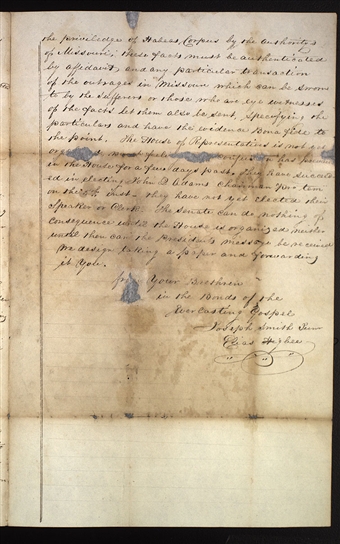 the priviledge of Habeas Corpus by the authorities
of Missouri, These facts must be authenticated
by affidavit, and any particular transaction
of the outrages in Missouri which can be sworn
to by the sufferers or those who are eye witnesses
of the facts let them also be sent, Specifying the
particulars and have the evidence Bona fide to
the point. The House of Representatives is not
has
in the House for a few days past. they have succeed
ed in electing John Q Adams Chairman Pro tem
on the Inst. they have not yet elected their
Speaker or Clerk. The Senate can do nothing of
Consequence until the House is organized neither
until then can the President's message be received
We design taking a paper and forwarding
it you.
Your Brethren
in the Bonds of the
Everlasting Gospel
Joseph Smith Junr
Elias Higbee